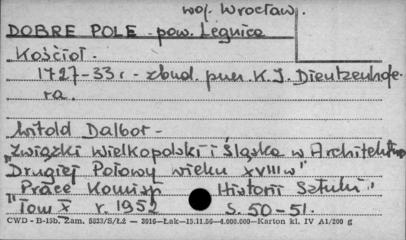 woj. Wrocław.
DOBRE POLE - pow. Legnica
Kościoł.
1727-33 r. - zbud. przez K. I. Dientzenhofe-
ra.
Witold Dalbor -
"Związki Wielkopolski i Śląska w Architekturze
Drugiej Połowy wieku XVIII w"
Prace Komisji Historii Sztuki"
"Tom X r. 1952 S. 50-51.
CWD - B-15b, Zam. 5833/S/Łż - 3016-Łak-15.11.56-4.000.000-Karton kl. IV A1/200 g